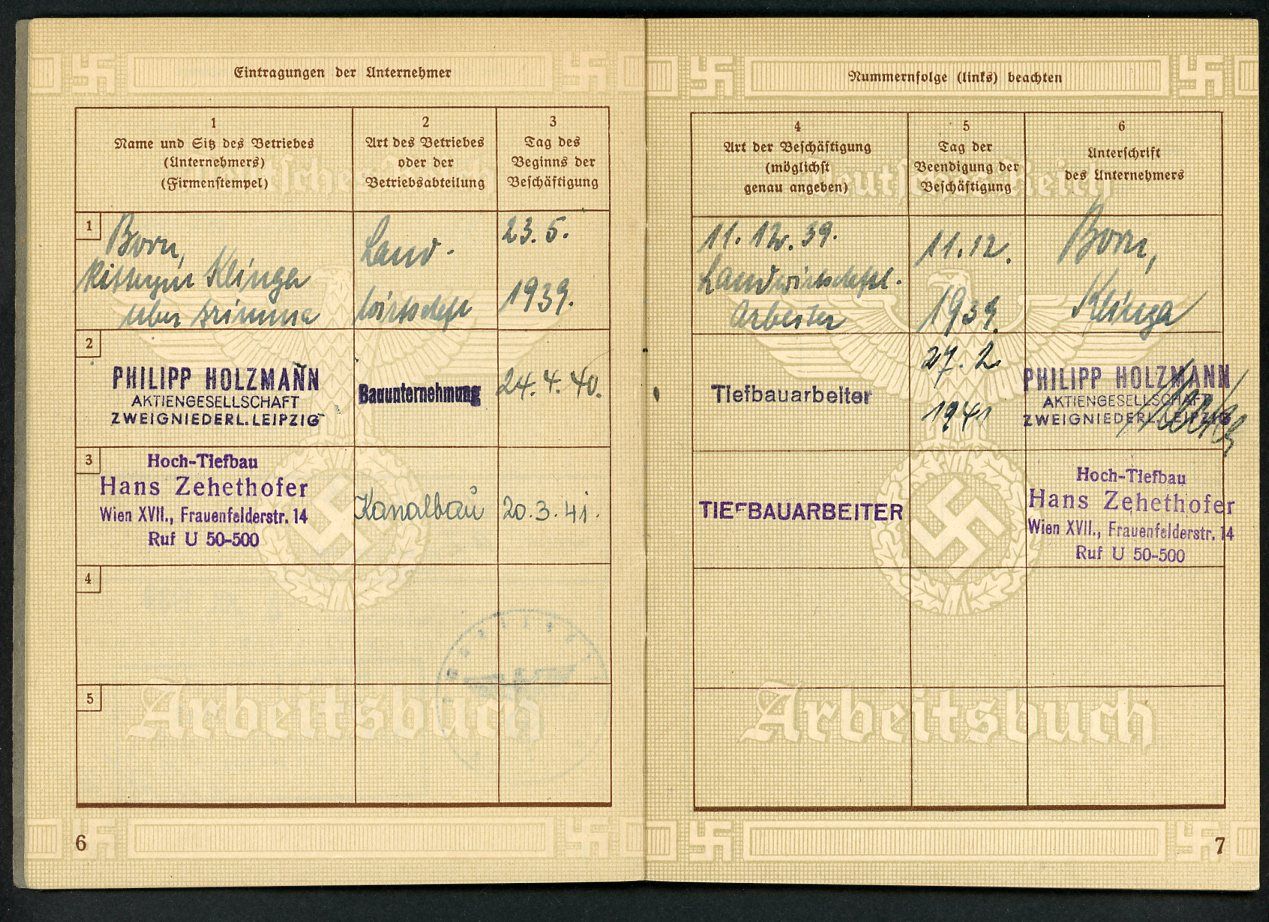 Eintragungen der Unternehmer
1
Name und Sitz des Betriebes
(Unternehmers)
(Firmenstempel)
2
Art des Betriebes
oder der
Betriebsabteilung
3
Tag des
Beginns der
Beschäftigung
1
Born,
Rittergut Klinga
über Grimma
Land-
wirtschaft
23. 5.
1939.
2
PHILIPP HOLZMANN
AKTIENGESELLSCHAFT
ZWEIGNIEDERL. LEIPZIG
Bauunternehmung
24. 4. 40.
3
Hoch-Tiefbau
Hans Zehethofer
Wien XVII., Frauenfelderstr. 14
Ruf U 50-500
Kanalbau
20. 3. 41.
4
5
Arbeitsbuch
6
Nummernfolge (links) beachten
4
Art der Beschäftigung
(möglichst
genau angeben)
5
Tag der
Beendigung der
Beschäftigung
6
Unterschrift
des Unternehmers
Deutsches Reich
11. 12. 39.
Landwirtschaftl.
Arbeiter
11. 12.
1939.
Born,
Klinga
Tiefbauarbeiter
27. 2
1941
PHILIPP HOLZMANN
AKTIENGESELLSCHAFT
ZWEIGNIEDERL. LEIPZIG
TIEFBAUARBEITER
Hoch-Tiefbau
Hans Zehethofer
Wien XVII., Frauenfelderstr. 14
Ruf U 50-500
Arbeitsbuch
7